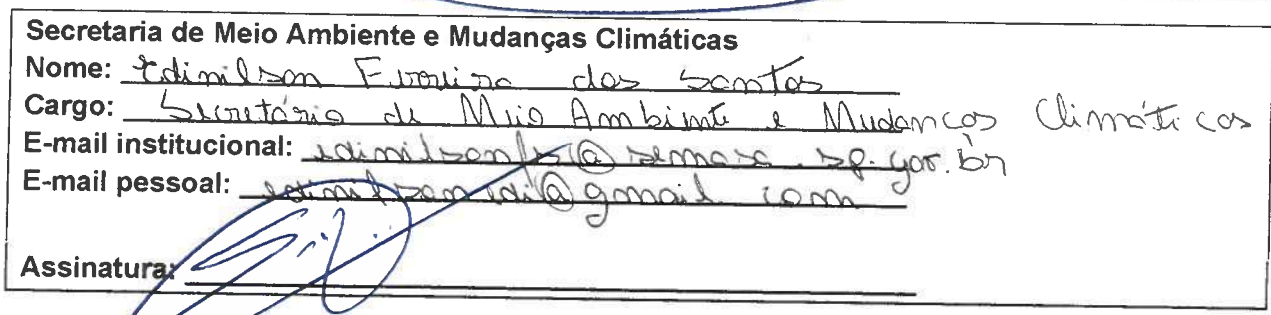 Secretaria de Meio Ambiente e Mudanças Climáticas
Nome: Edimilson Ferreira dos Santos
Cargo: Secretário de Meio Ambiente e Mudanças Climáticas
E-mail institucional: edimilsonfs@semasa.sp.gov.br
E-mail pessoal: edimilsonedi@gmail.com
Assinatura: